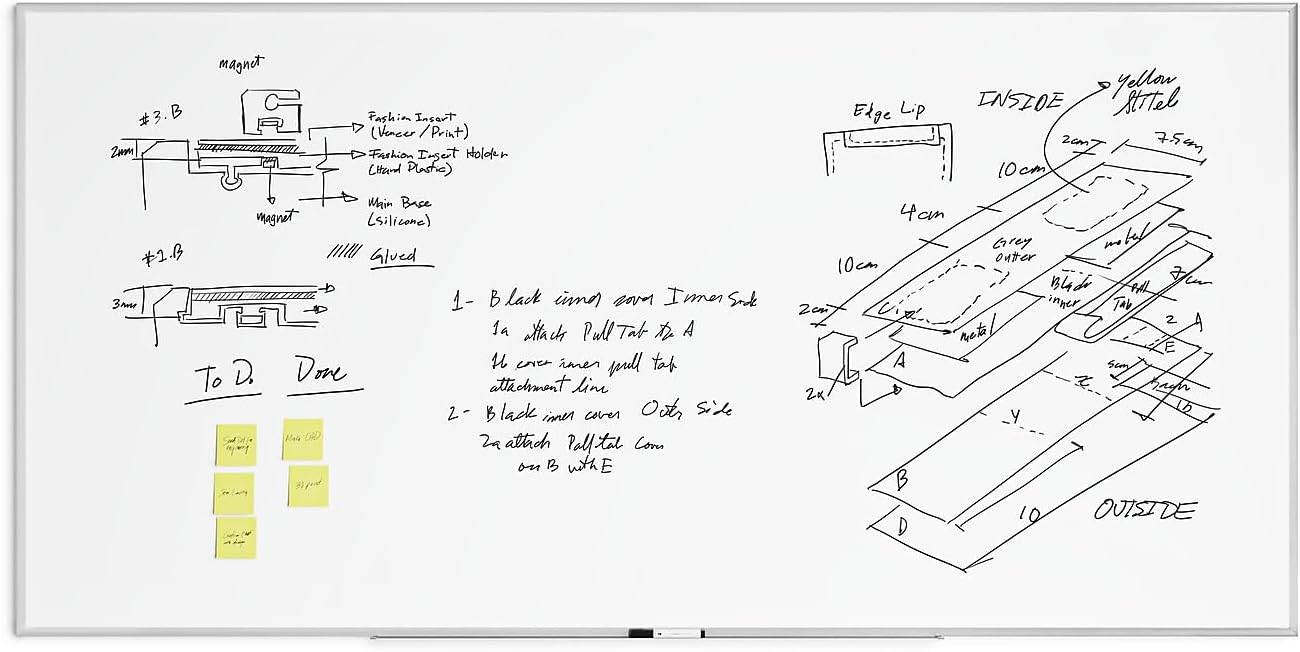 magnet
#3.B
2mm
Fashion Insert
(Veneer/Print)
Fashion Insert Holder
(Hard Plastic)
Main Base
(Silicone)
magnet
Glued
#1.B
3mm
To Do
Done
Make CAD
3D print
1- Black inner cover Inner Side
1a attach Pull Tab to A
1b cover inner pull tab
attachment line
2- Black inner cover Outer Side
2a attach Pull tab Cover
on B with E
Edge Lip
INSIDE
Yellow
2cm
7.5cm
10cm
4cm
10cm
2cm
Grey
outter
metal
Black
inner
Pull
Tab
7cm
metal
A
2x
2
A
E
5cm
1b
Y
B
D
10
OUTSIDE